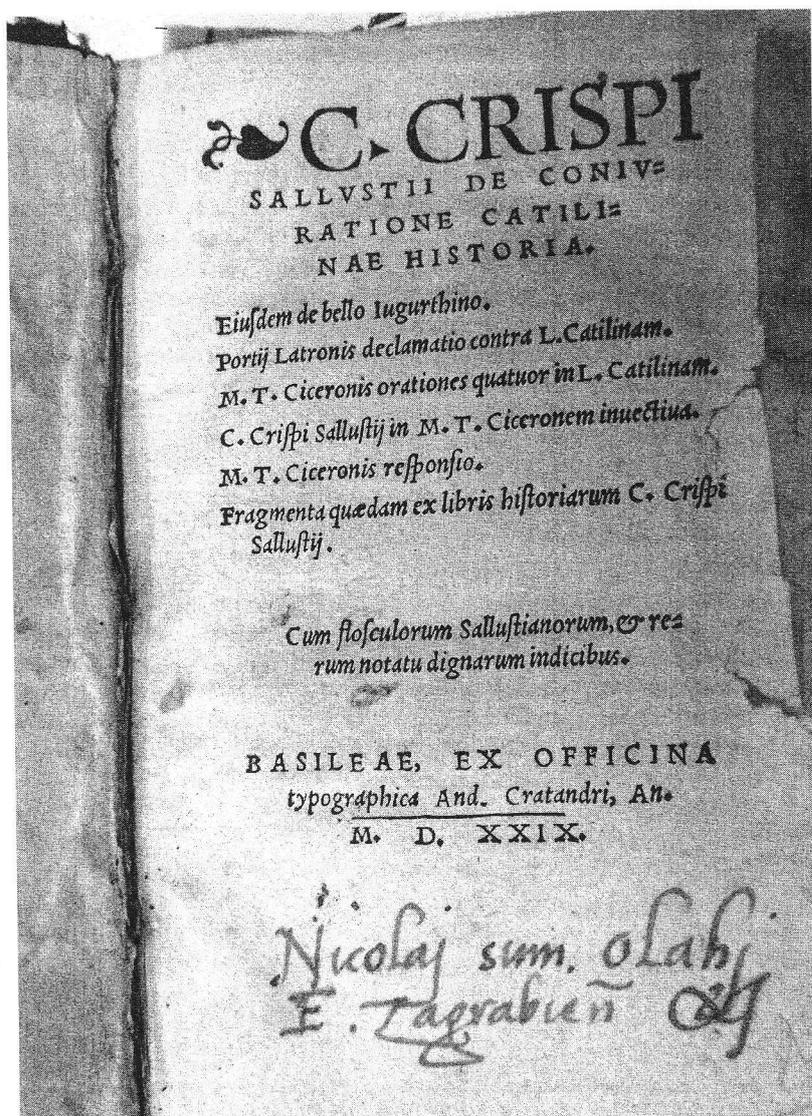 C. CRISPI
SALLVSTII DE CONIV=
RATIONE CATILI=
NAE HISTORIA.
Eiuſdem de bello Iugurthino.
Portij Latronis declamatio contra L. Catilinam.
M. T. Ciceronis orationes quatuor in L. Catilinam.
C. Criſpi Salluſtij in M. T. Ciceronem inuectiua.
M. T. Ciceronis reſponſio.
Fragmenta quædam ex libris hiſtoriarum C. Criſpi
Salluſtij.
Cum floſculorum Salluſtianorum, & re=
rum notatu dignarum indicibus.
BASILEAE, EX OFFICINA
typographica And. Cratandri, An.
M. D. XXIX.
Nicolaj sum. olahj
E. Zagrabien̄